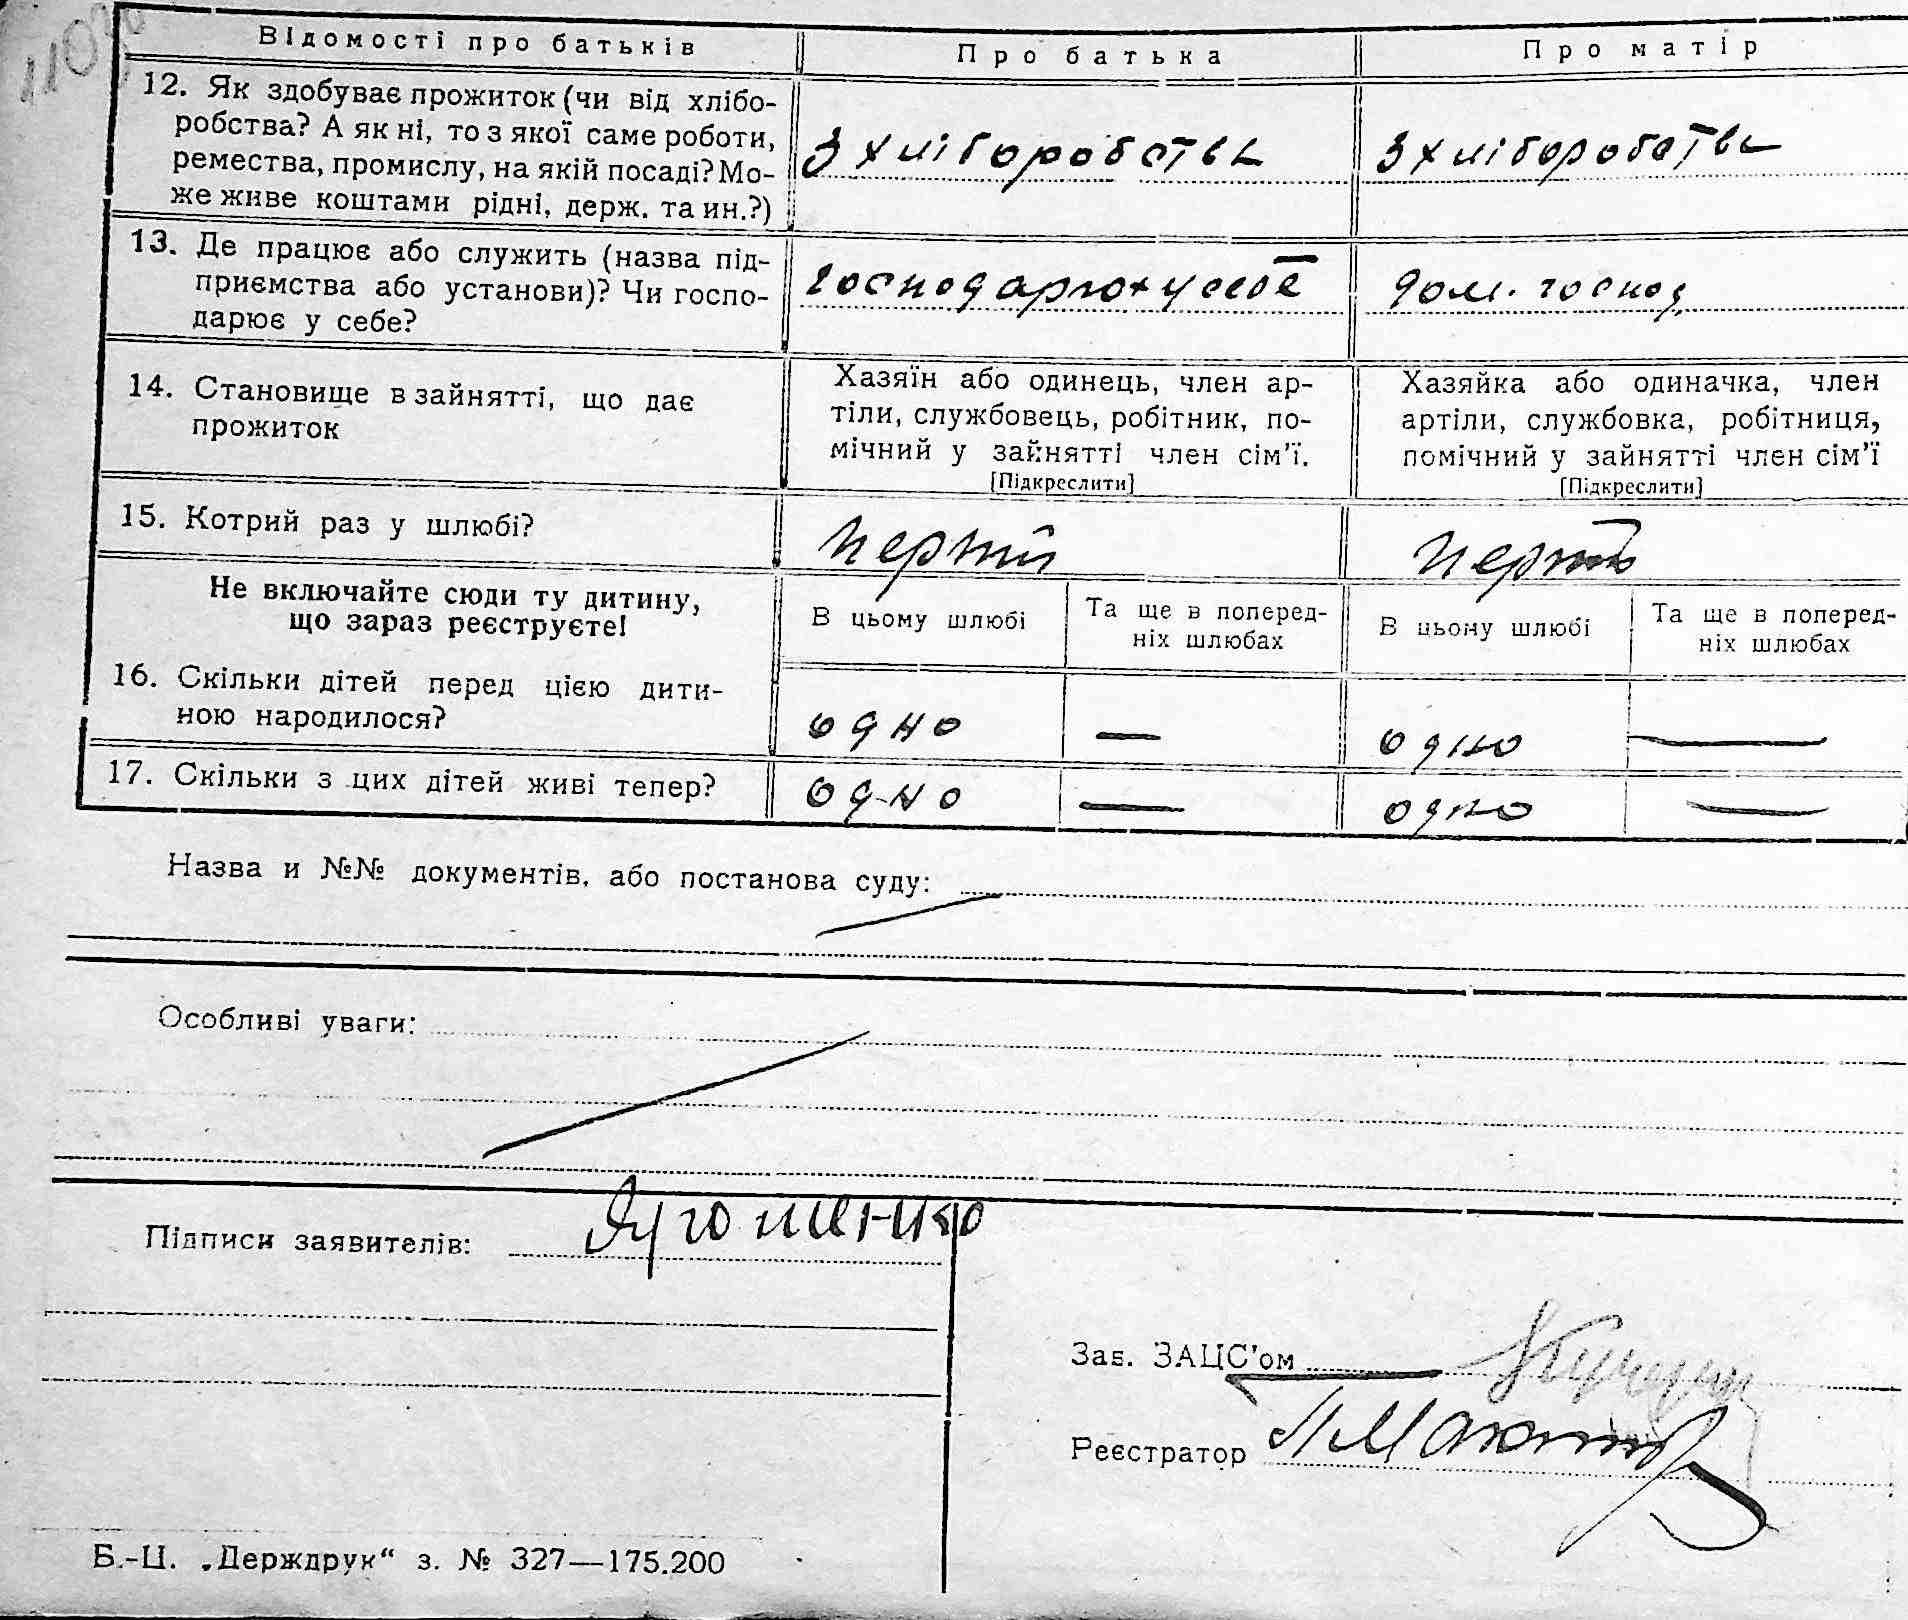 Відомості про батьків
Про батька
Про матір
12. Як здобуває прожиток (чи від хлібо-
робства? А як ні, то з якої саме роботи,
ремества, промислу, на якій посаді? Мо-
же живе коштами рідні, держ. та ин.?)
З хліборобства
З хліборобства
13. Де працює або служить (назва під-
приємства або установи)? Чи госпо-
дарює у себе?
господарює у себе
дом. господ.
14. Становище в зайнятті, що дає
прожиток
Хазяїн або одинець, член ар-
тіли, службовець, робітник, по-
мічний у зайнятті член сім'ї.
[Підкреслити]
Хазяйка або одиначка, член
артіли, службовка, робітниця,
помічний у зайнятті член сім'ї
[Підкреслити]
15. Котрий раз у шлюбі?
Не включайте сюди ту дитину,
що зараз реєструєте!
В цьому шлюбі
Та ще в поперед-
ніх шлюбах
В цьому шлюбі
Та ще в поперед-
ніх шлюбах
16. Скільки дітей перед цією дити-
ною народилося?
одно
—
одно
—
17. Скільки з цих дітей живі тепер?
одно
—
одно
—
Назва и №№ документів, або постанова суду:
Особливі уваги:
Підписи заявителів:
Зав. ЗАЦС'ом
Реєстратор
Б.-Ц. „Держдрук“ з. № 327—175.200